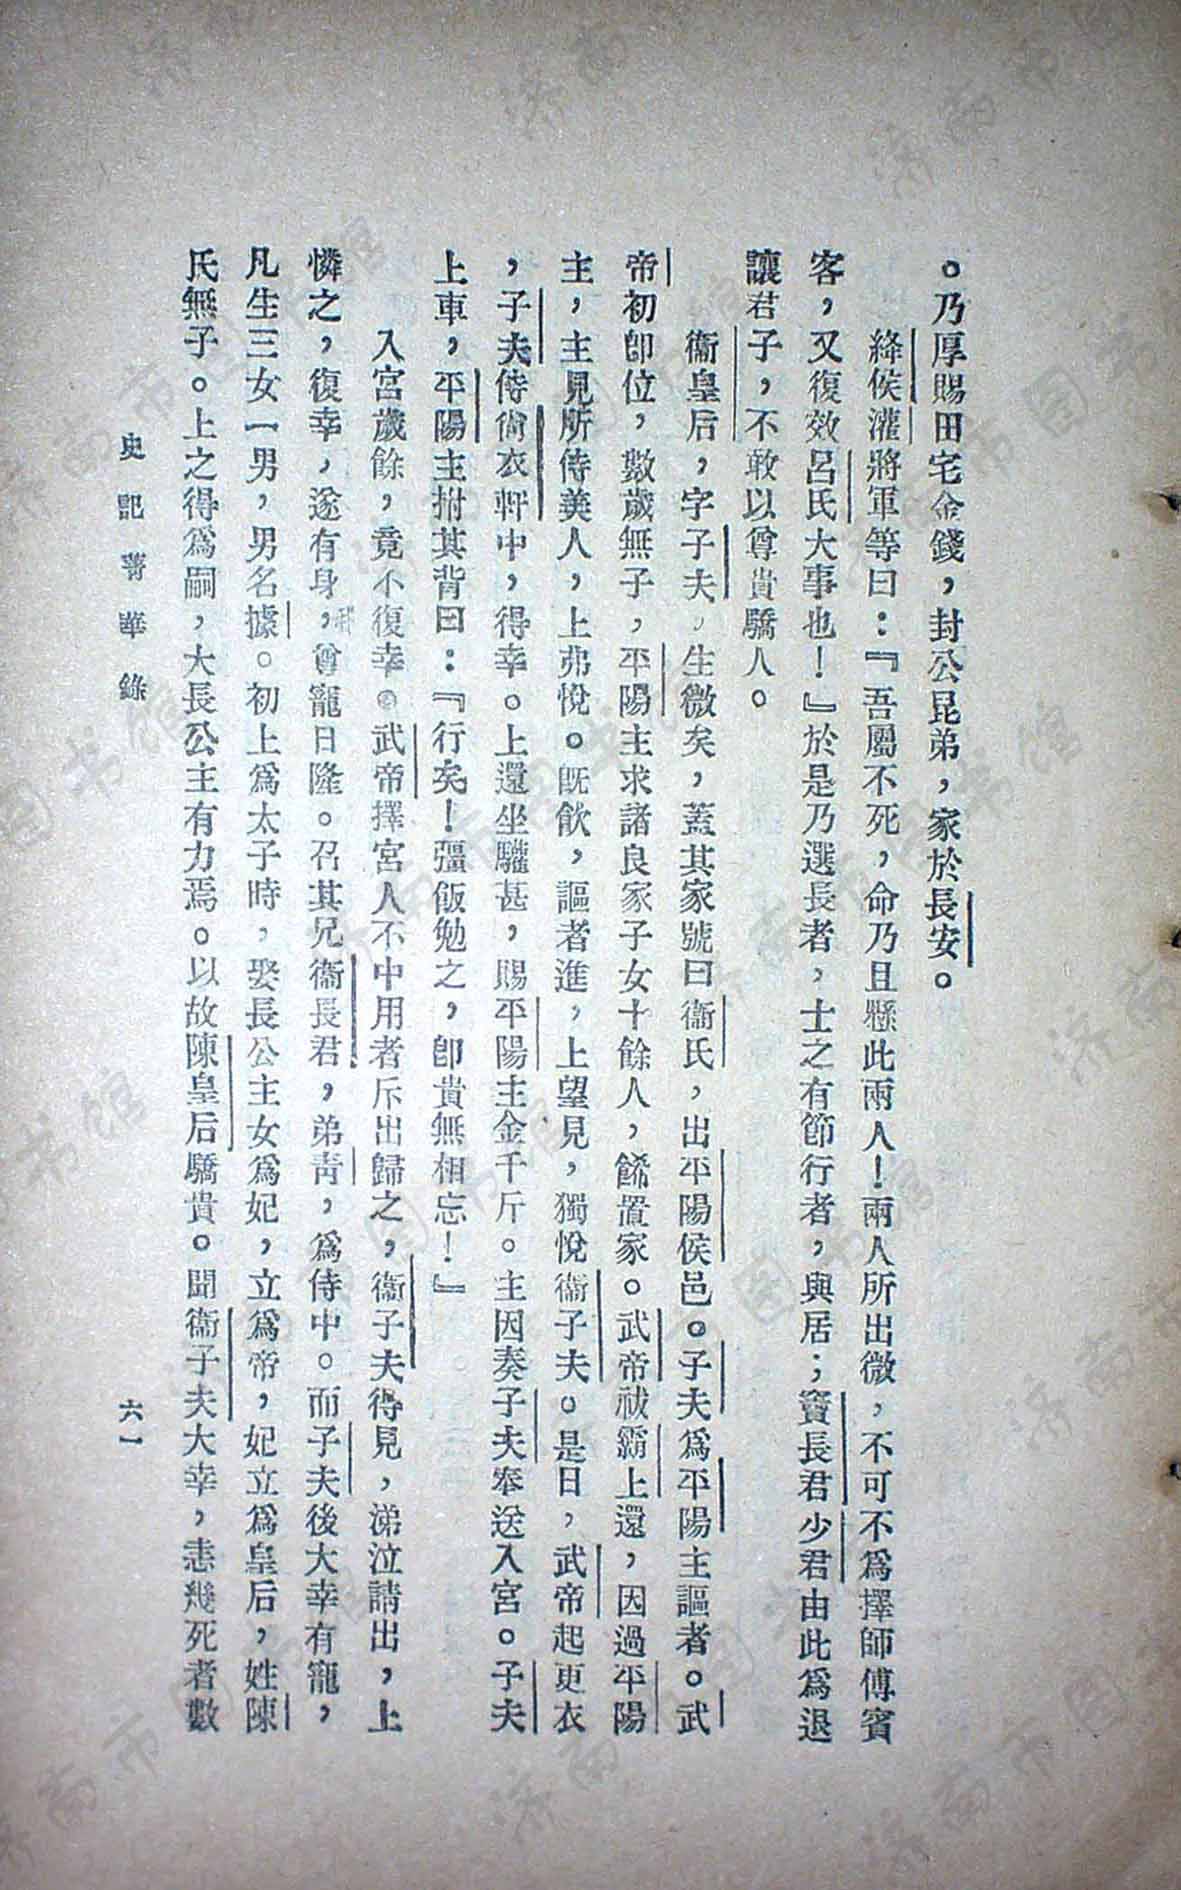 。乃厚賜田宅金錢，封公昆弟，家於長安。
絳侯灌將軍等曰：『吾屬不死，命乃且懸此兩人！兩人所出微，不可不爲擇師傅賓
客，又復效呂氏大事也！』於是乃選長者，士之有節行者，與居；竇長君少君由此爲退
讓君子，不敢以尊貴驕人。
衞皇后，字子夫，生微矣，蓋其家號曰衞氏，出平陽侯邑。子夫爲平陽主謳者。武
帝初卽位，數歲無子，平陽主求諸良家子女十餘人，餙置家。武帝祓霸上還，因過平陽
主，主見所侍美人，上弗悅。旣飮，謳者進，上望見，獨悅衞子夫。是日，武帝起更衣
，子夫侍尙衣軒中，得幸。上還坐驩甚，賜平陽主金千斤。主因奏子夫奉送入宮。子夫
上車，平陽主拊其背曰：『行矣！彊飯勉之，卽貴無相忘！』
入宮歲餘，竟不復幸。武帝擇宮人不中用者斥出歸之，衞子夫得見，涕泣請出，上
憐之，復幸，遂有身，尊寵日隆。召其兄衞長君，弟靑，爲侍中。而子夫後大幸有寵，
凡生三女一男，男名據。初上爲太子時，娶長公主女爲妃，立爲帝，妃立爲皇后，姓陳
氏無子。上之得爲嗣，大長公主有力焉。以故陳皇后驕貴。聞衞子夫大幸，恚幾死者數
史記菁華錄
六一
济南市图书馆